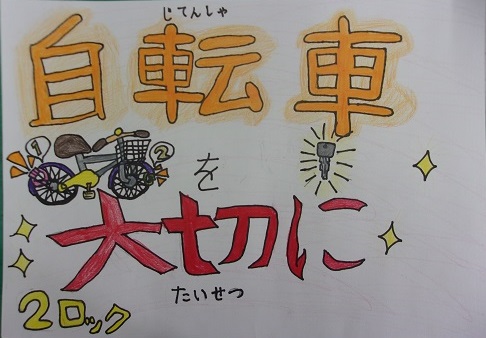 じてんしゃ
自転車
1 2
を
大切に
たいせつ
2ロック